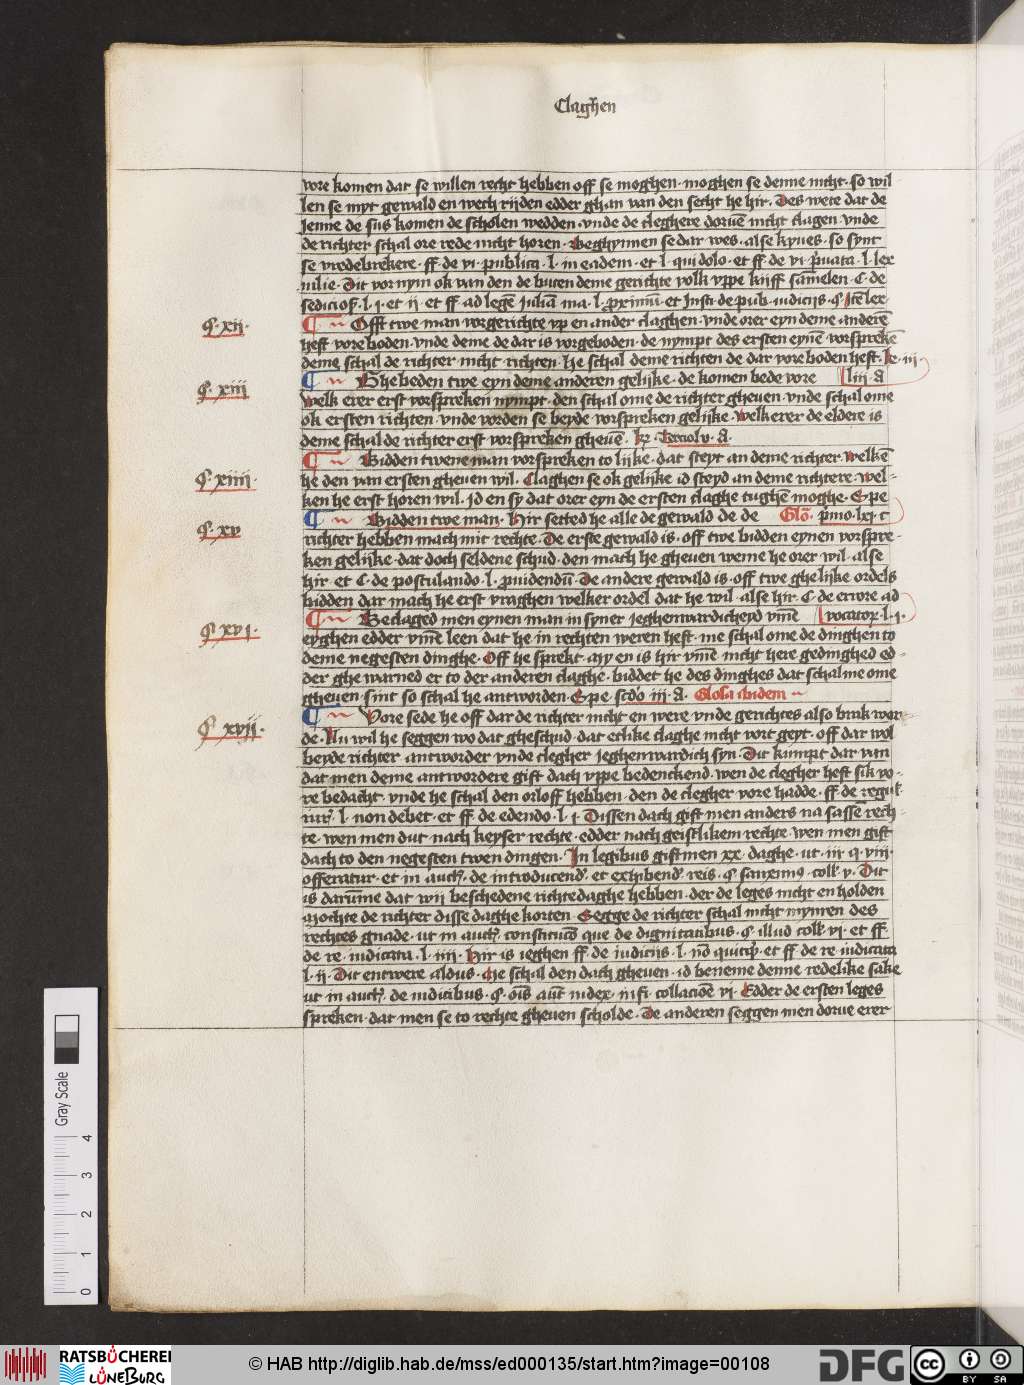 Claghen
vore komen dat se willen recht hebben off se moghen · moghen se denne nicht · so wil
len se myt gewald en wech rijden edder ghan van den secht he hir · Des were dat de
jenne de sus komen de scholen wedden · vnde de cleghere doruē nicht clagen vnde
de richter schal ore rede nicht horen · Beghynnen se dar wes · alse kyues · so synt
se vredebrekere · ff de vi publica · l · in eadem · et l · qui dolo · et ff de vi p̄uata · l · lex
iulie · Dit vornym ok van den de buten deme gerichte volk vppe kijff sāmelen · C · de
sedicioꝭ · l · i · et ij · et ff ad legē Juliā ma · l · proximū · et Insti de pub iudicijs · § Itē lex
§ · xij ·
¶ Offt twe man vorgerichte vp en ander claghen · vnde orer eyn deme anderē
heft vore boden · vnde deme de dar is vorgeboden · de nympt des ersten eynē vorsprekē
deme schal de richter nicht richten · he schal deme richten de dar vore boden heft · le · iij ·
liij · A
§ · xiij
¶ Ghe beden twe eyn deme anderen gelijke · de komen bede vore
welk erer erst vorspreken nympt · den schal ome de richter gheuen · vnde schal ome
ok ersten richten · vnde vorden se beyde vorspreken gelijke · welkerer de eldere is
deme schal de richter erst vorspreken gheuē ·
§ · xiiij ·
¶ Bidden twene man vorspreken to lijke · dat steyt an deme richter welkē
he den van ersten gheuen wil · Claghen se ok gelijke id steyd an deme richtere · wel-
ken he erst horen wil · id en sy dat orer eyn de ersten claghe tughē moghe · Epe
Glō · p̄mo · lxj · c
§ · xv
¶ Bidden twe man · Hir setted he alle de gewald de de
richter hebben mach mit rechte · De erste gewald is · off twe bidden eynen vorspre-
ken gelijke · dat doch seldene schud · den mach he gheuen weme he orer wil · alse
hir · et C · de postulando · l · prouidendū · De andere gewald is · off twe ghelijke ordels
bidden dar mach he erst vraghen welker ordel dat he wil · alse hir · C · de errore ad
vocatoꝝ · l · i ·
§ · xvi ·
¶ Beclaged men eynen man in syner jeghenwardicheyd vm̄e
eyghen edder vm̄e leen dat he in rechten weren heft · me schal ome de dinghen to
deme negesten dinghe · Off he sprekt · my en is hir vm̄e nicht here gedinghed ed-
der ghe warned er to der anderen claghe · biddet he des dinghes dat schal me ome
gheuen · sint so schal he antworden · Epe scdo iij · A · Glosa ibidem
§ · xvij ·
¶ Vore sede he off dar de richter nicht en were vnde gerichtes also brak wor
de · Nu wil he seggen wo dat gheschud · dat etlike claghe nicht vort geyt · off dar wol
beyde richter antworder vnde clegher jeghenwardich syn · Dit kumpt dar van
dat men deme antwordere gift dach vppe bedenckend · wen de clegher heft sik vo-
re bedacht · vnde he schal den orloff hebben · den de clegher vore hadde · ff de regul
iurꝭ l · non debet · et ff · de edendo · l · i · Dissen dach gift men anders na sassen rech-
te · wen men dut nach keyser rechte · edder nach geistlikem rechte · wen men gift
dach to den negesten twen dingen · In legibus gift men xx · daghe · ut · iij · q · viij ·
offeratur · et in auch · de introducend · et exhibend · reis · § sanximꝰ · coll · v · Dit
is darūme dat wij beschedene richtedaghe hebben · der de leges nicht en holden
Mochte de richter disse daghe korten · Segge de richter schal nicht mynren des
rechtes gnade · ut in auch · constitucō que de dignitatibus · § illud coll · vi · et ff ·
de re · iudicata · l · iiij · Hir is jeghen ff · de iudicijs · l · nō quicqꝫ · et ff de re · iudicata
l · ij · Dit entwere aldus · Me schal den dach gheuen · id beneme denne redelike sake
ut in auch · de iudicibus · § · oīs aūt iudex · in fi · collaciōe vi · Edder de ersten leges
spreken · dat men se to rechte gheuen scholde · De anderen seggen men dorue erer
Gray Scale
0 1 2 3 4
RATSBÜCHEREI
LÜNEBURG
© HAB http://diglib.hab.de/mss/ed000135/start.htm?image=00108
DFG
cc BY SA